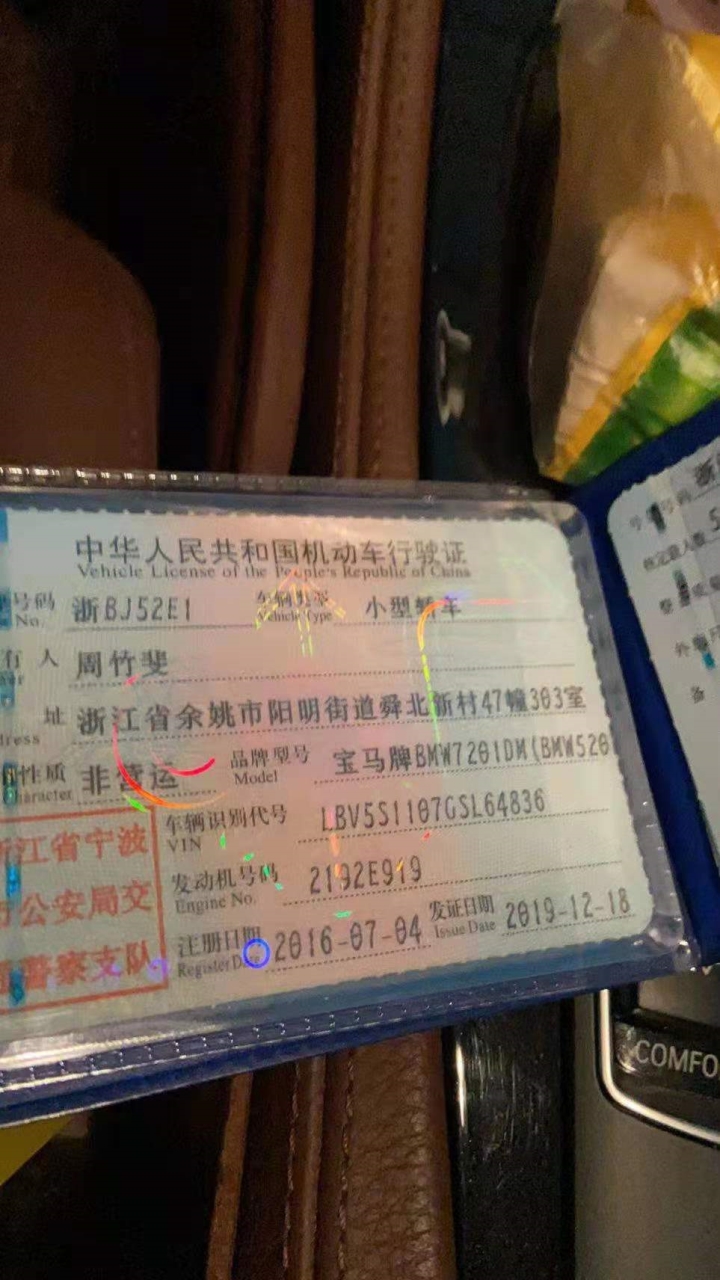 中华人民共和国机动车行驶证
Vehicle License of the People's Republic of China
号码 浙BJ52E1 车辆类型 小型轿车
No. Vehicle Type
有人 周竹斐
址 浙江省余姚市阳明街道舜北新村47幢303室
性质 非营运 品牌型号 宝马牌BMW7201DM(BMW520
Character Model
车辆识别代号 LBV5S1107GSL64836
VIN
发动机号码 2192E919
Engine No.
注册日期 2016-07-04 发证日期 2019-12-18
Register Date Issue Date
江省宁波
公安局交
警察支队
COMFO